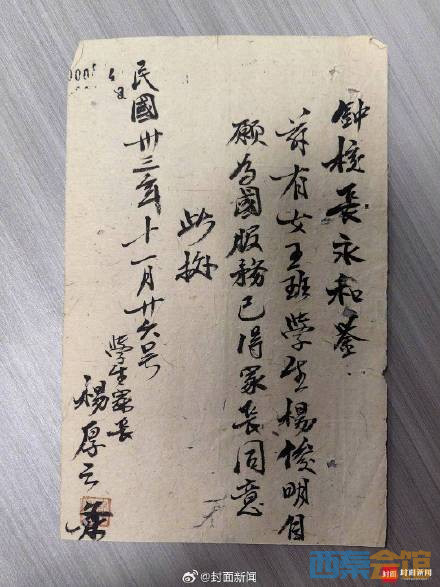 鈡校長永和鉴
茲有女五班學生楊俊明自
願为國服務已得家長同意
此據
民國卅三年十一月廿六号
學生家長
楊厚云
@封面新闻
西秦会馆
封面 封面新闻